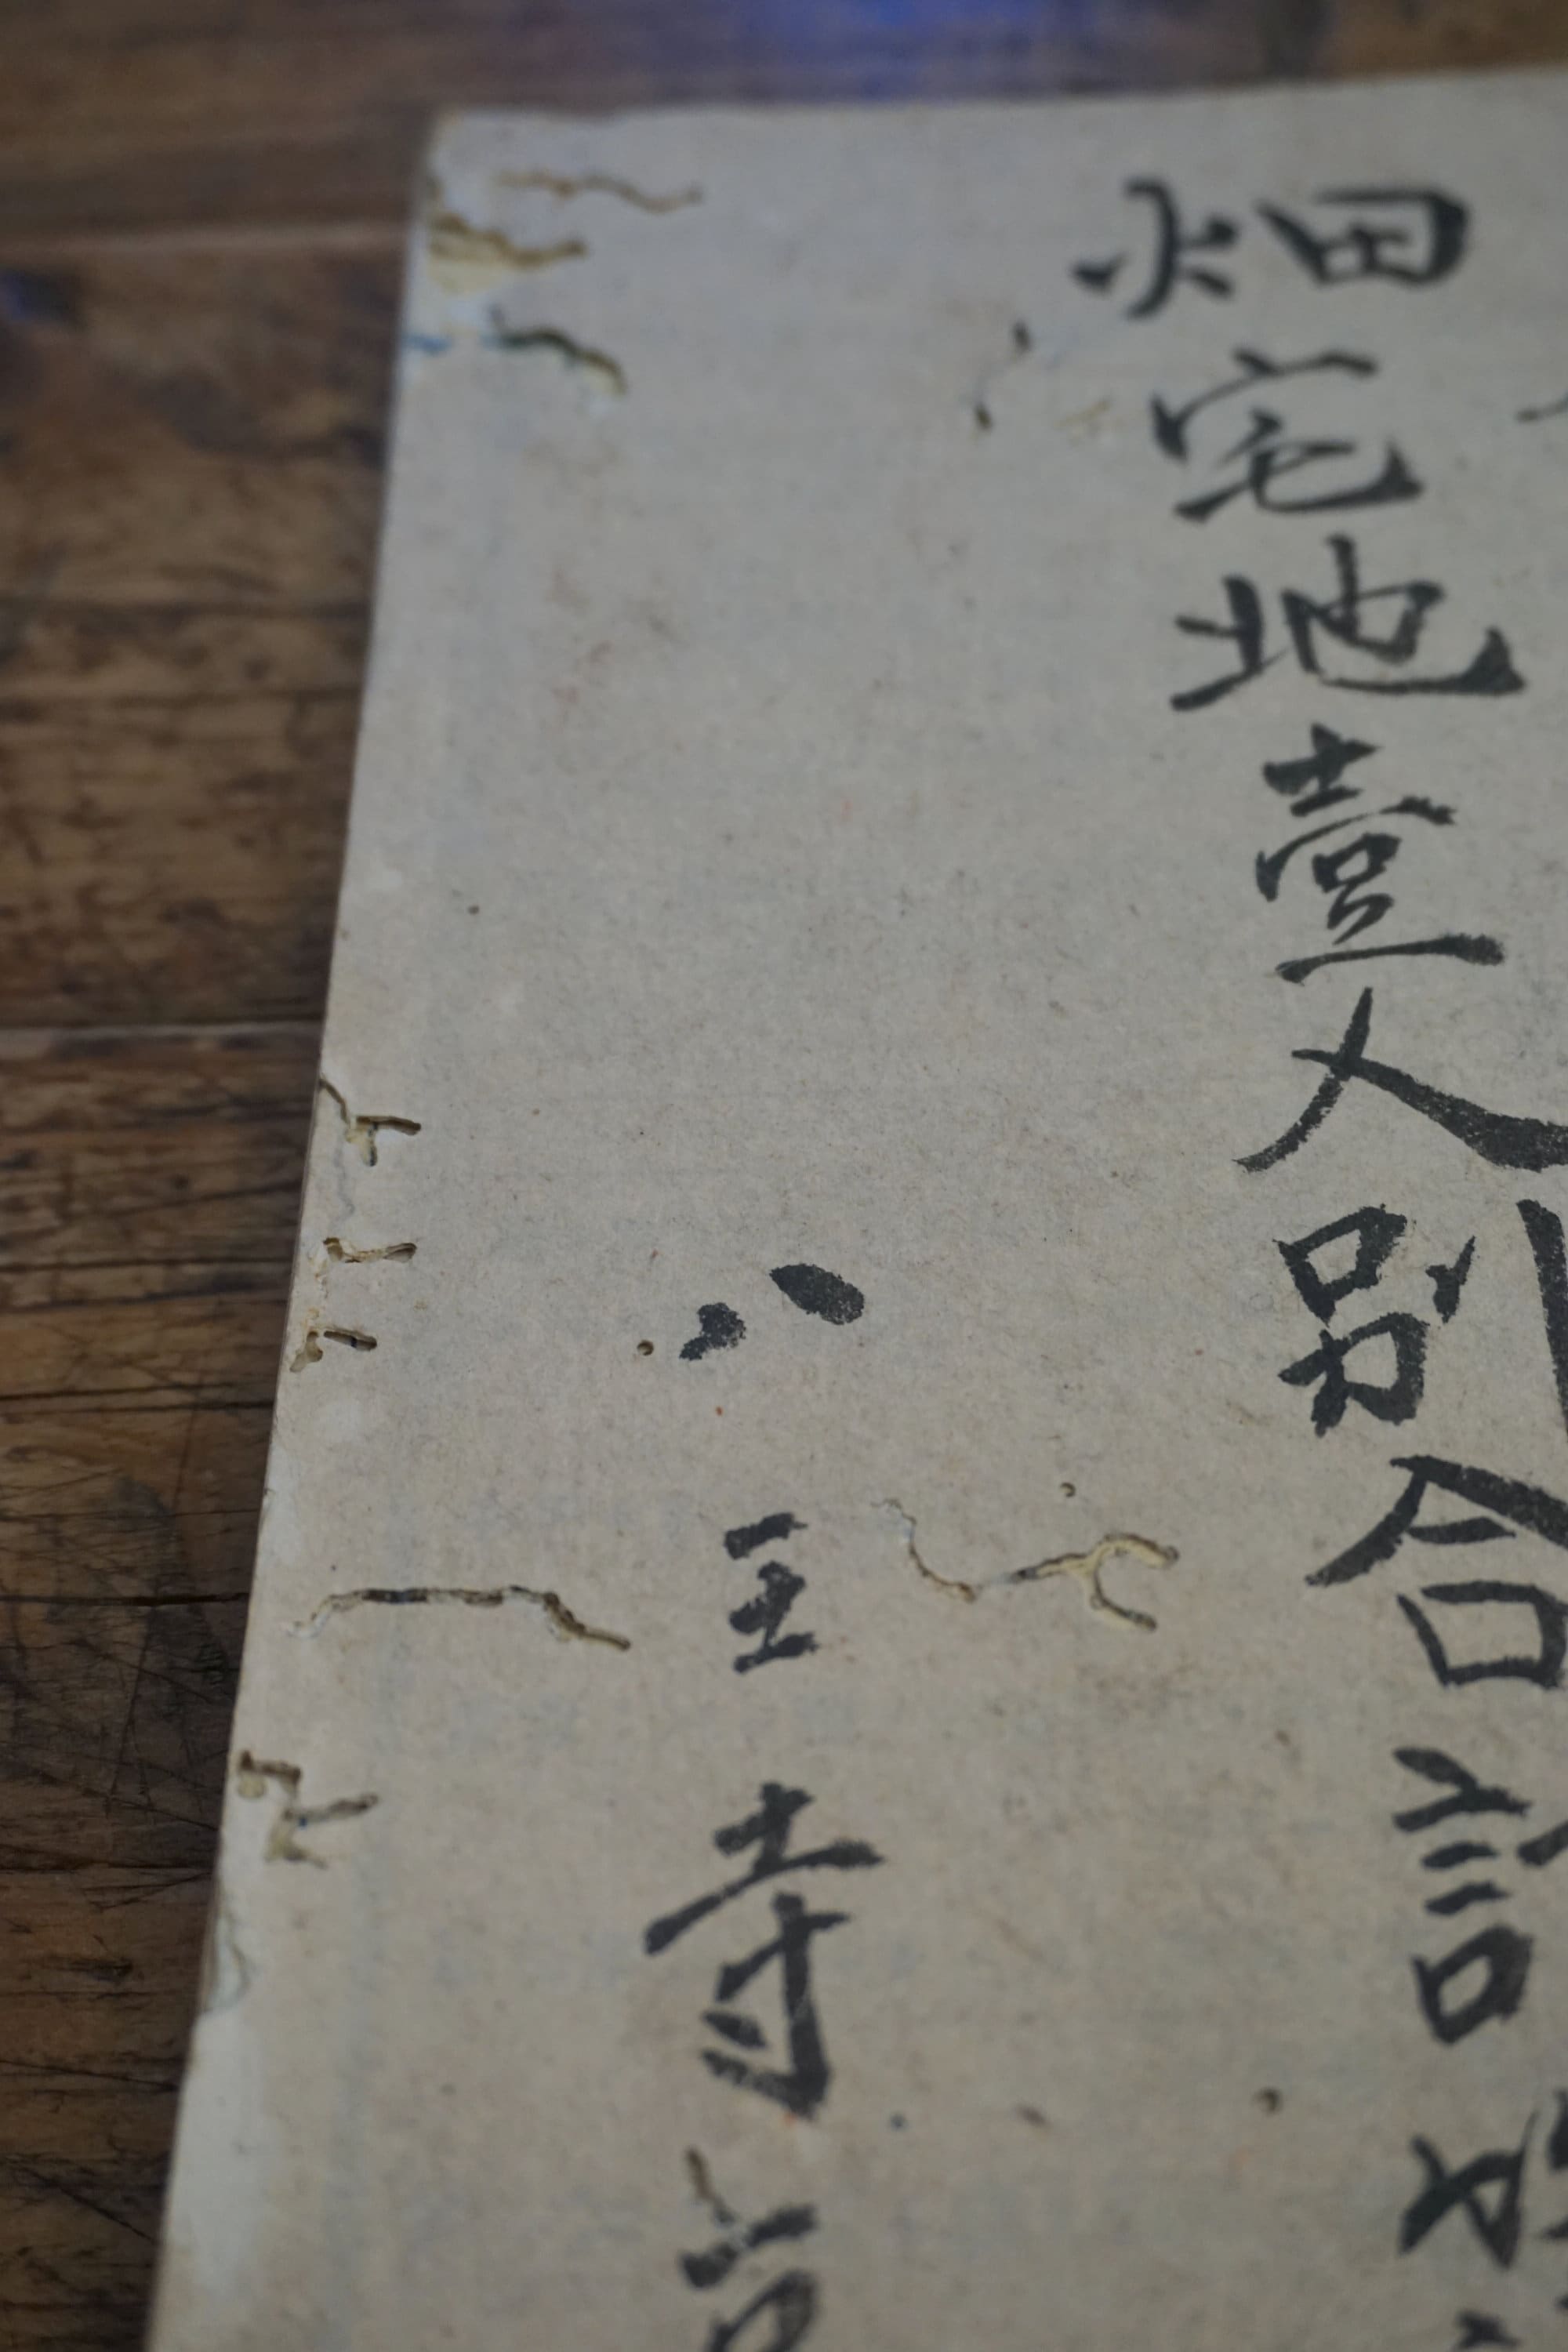 畑宅地壹人別合計
八王寺